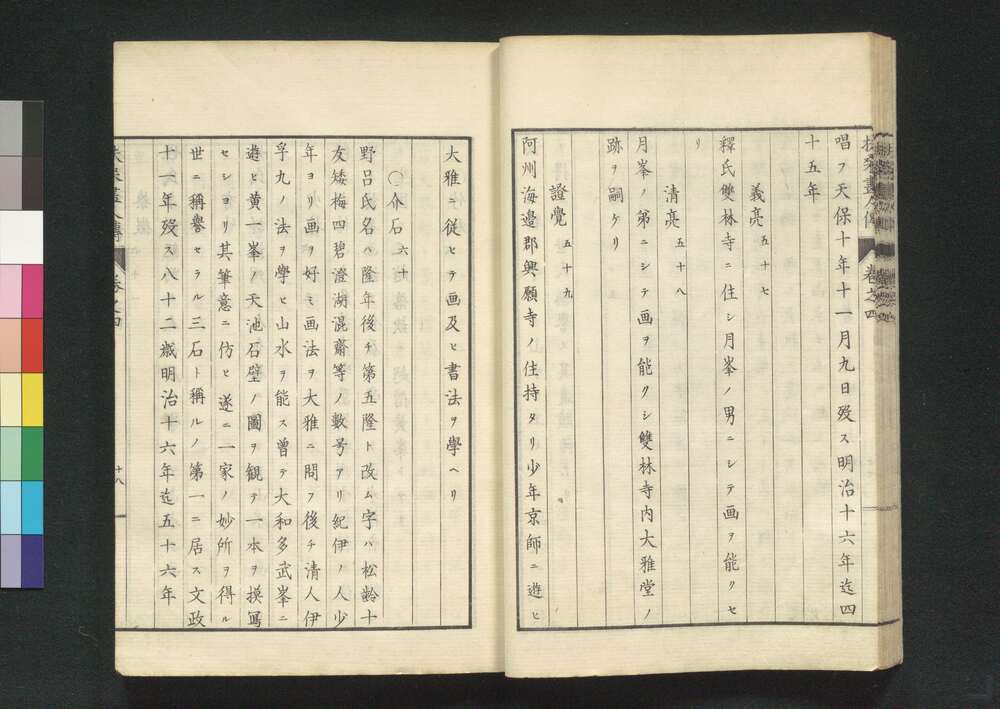 唱フ天保十年十一月九日歿ス明治十六年迄四
十五年
義亮 五十七
釋氏雙林寺ニ住シ月峯ノ男ニシテ画ヲ能クセ
リ
清亮 五十八
月峯ノ第ニシテ画ヲ能クシ雙林寺内大雅堂ノ
跡ヲ嗣ケリ
證覺 五十九
阿州海邉郡興願寺ノ住持タリ少年京師ニ遊ヒ
大雅ニ従ヒテ画及ヒ書法ヲ學ヘリ
〇介石 六十
野呂氏名ハ隆年後チ第五隆ト改ム字ハ松齡十
友矮梅四碧澄湖混齋等ノ數号アリ紀伊ノ人少
年ヨリ画ヲ好ミ画法ヲ大雅ニ問フ後チ清人伊
孚九ノ法ヲ學ヒ山水ヲ能ス曽テ大和多武峯ニ
遊ヒ黄一峯ノ天池石壁ノ圖ヲ観テ一本ヲ摸寫
セシヨリ其筆意ニ仿ヒ遂ニ一家ノ妙所ヲ得ル
世ニ稱譽セラル三石ト稱ルノ第一ニ居ス文政
十一年歿ス八十二歳明治十六年迄五十六年
巻之四
十八